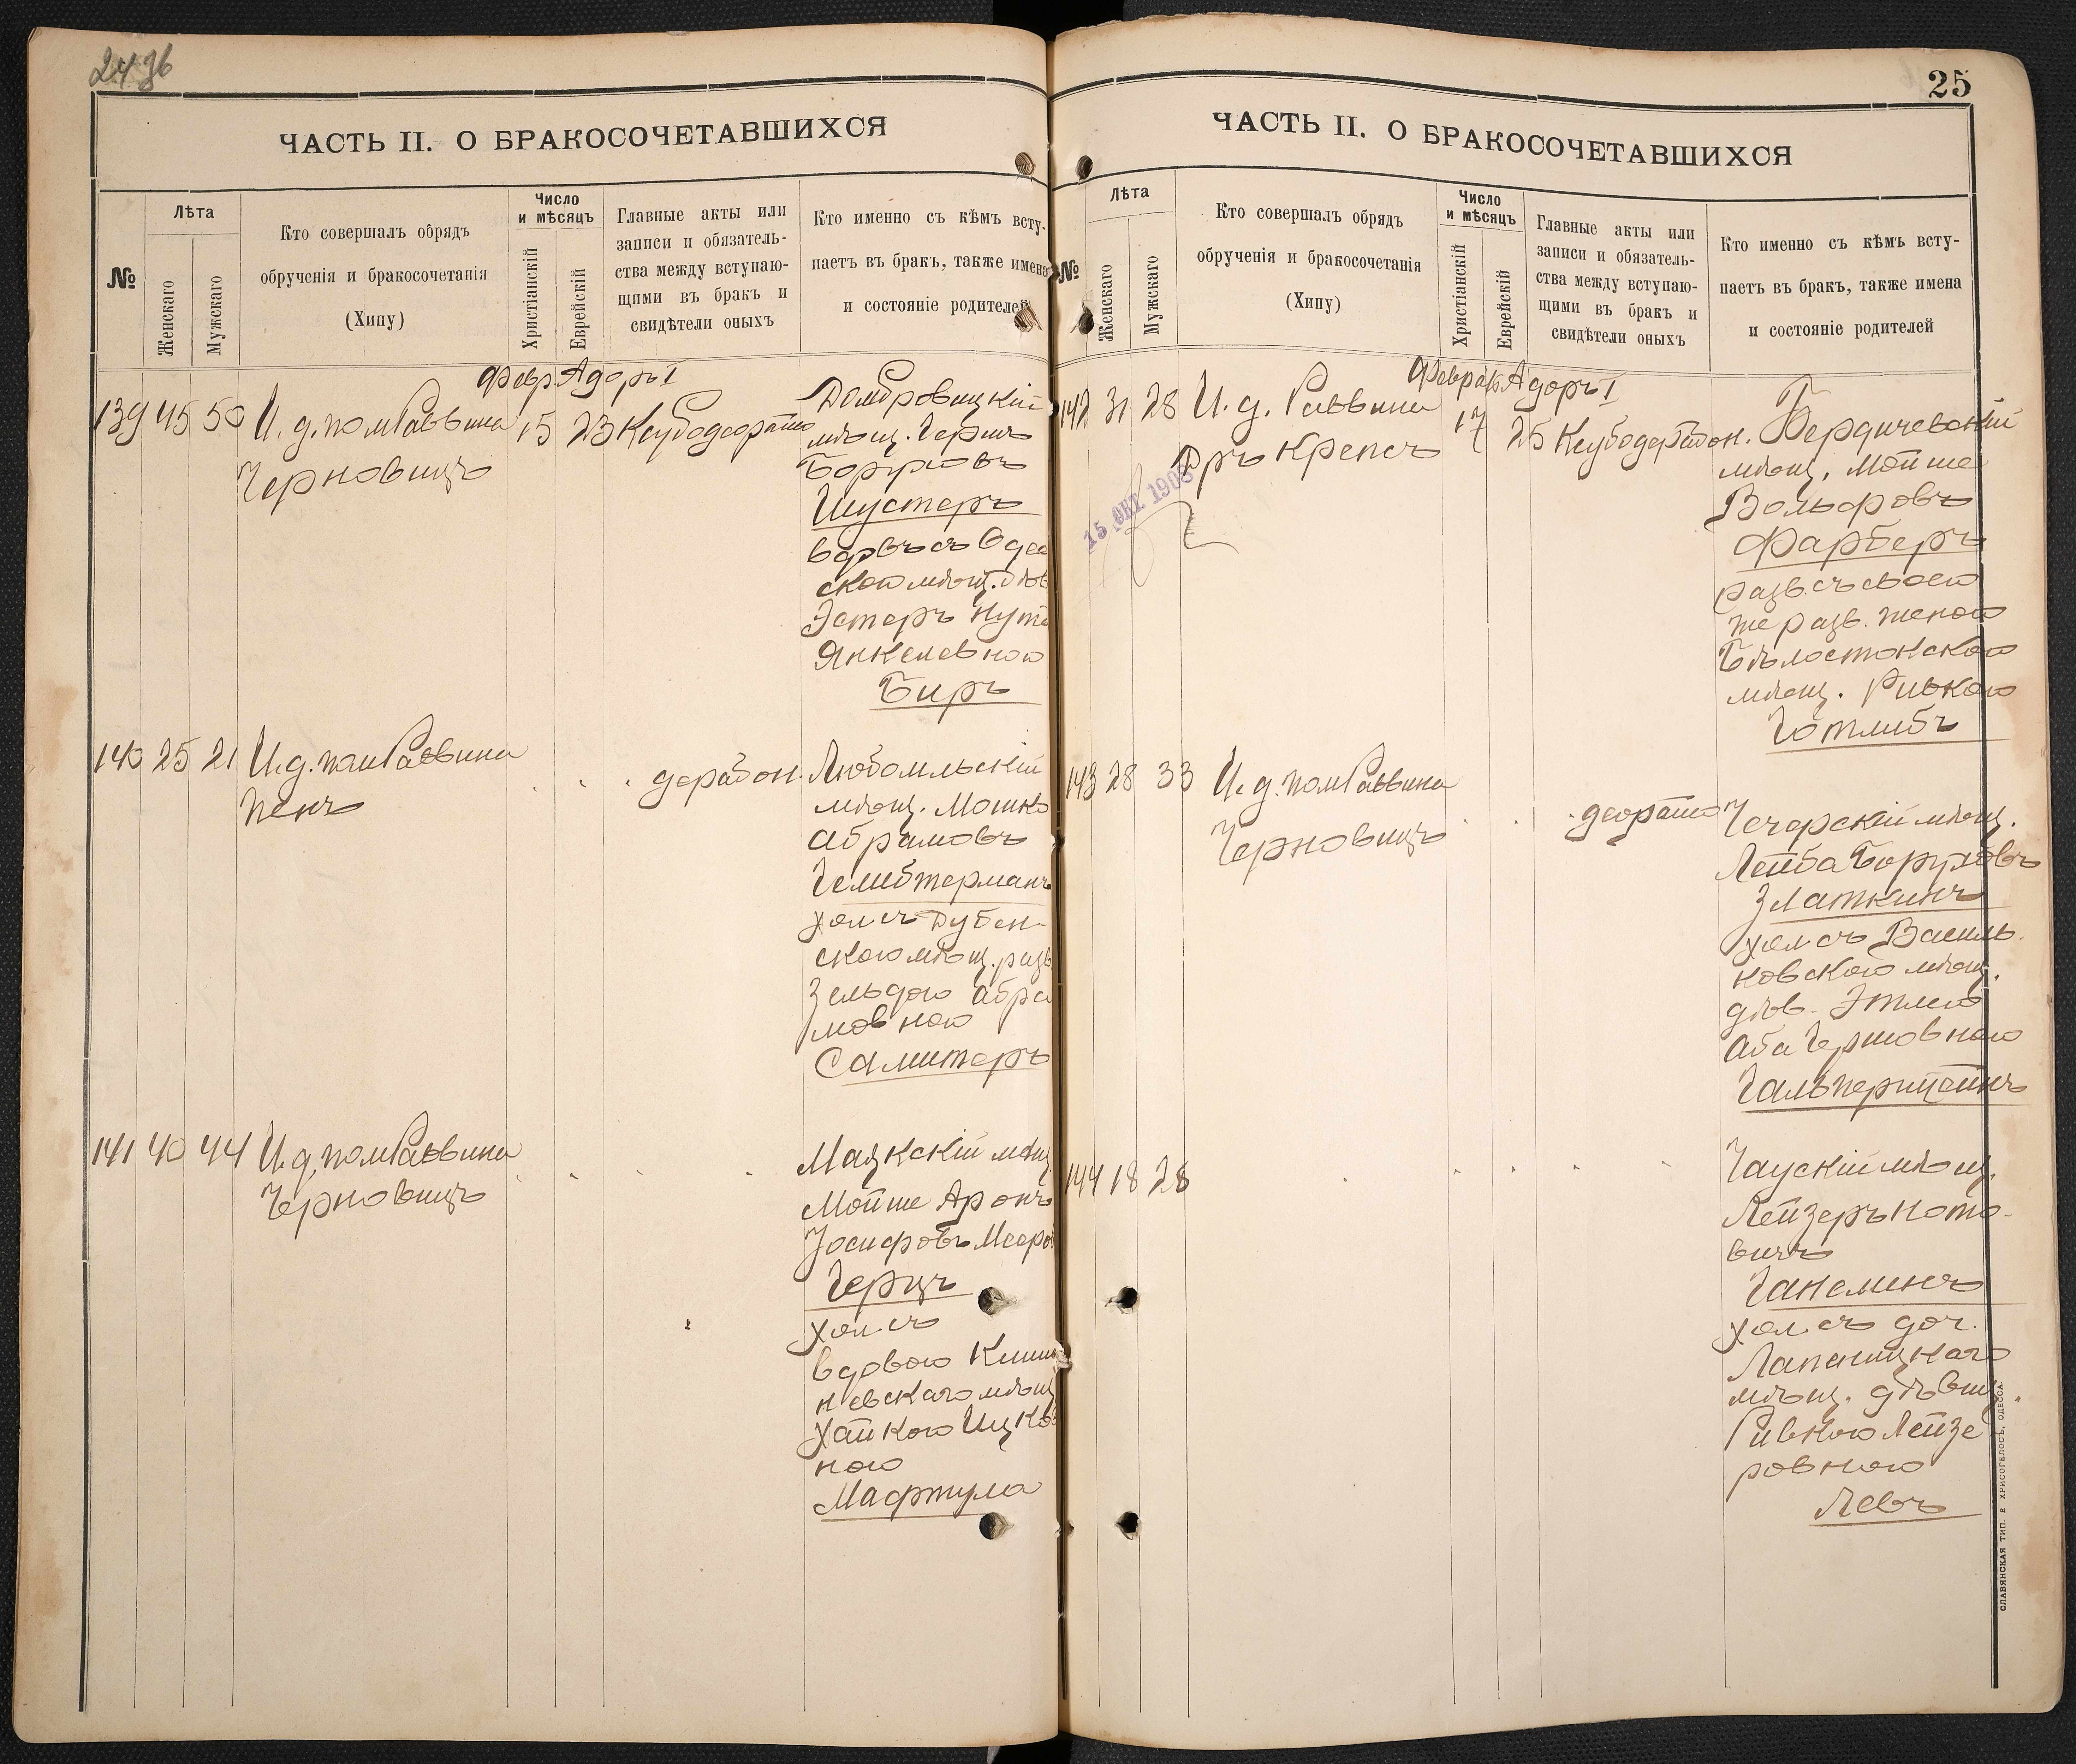 24 36
ЧАСТЬ II. О БРАКОСОЧЕТАВШИХСЯ
№
Лѣта
Женскаго
Мужскаго
Кто совершалъ обрядъ
обрученія и бракосочетанія
(Хипу)
Число
и мѣсяцъ
Христіанскій
Еврейскій
Главные акты или
записи и обязатель-
ства между вступаю-
щими въ бракъ и
свидѣтели оныхъ
Кто именно съ кѣмъ всту-
паетъ въ бракъ, также имена
и состояніе родителей
Февр. Адоръ I
139 45 50 И. д. пом Раввина 15 23
Черновицъ
Домбровицкій
мѣщ. Гершъ
Боруховъ
Шустеръ
вдовъ съ Одес
ской мѣщ.
Эстеръ
Янкелевною
Биръ
140 25 21 И. д. пом Раввина
Пенъ
Любомльскій
мѣщ. Мошко
Абрамовъ
Гелибтерманъ
хол съ Дубен-
скою мѣщ. разв
Зельдою Абра
мовною
Самитеръ
141 40 44 И. д. пом Раввина
Черновицъ
Маякскій мѣщ
Мойше Аронъ
Іосифовъ Мееро
Герцъ
хол. съ
вдовою Киши
невскаго мѣщ
Хайкою Ицков
ною
Мафтула
25
ЧАСТЬ II. О БРАКОСОЧЕТАВШИХСЯ
№
Лѣта
Женскаго
Мужскаго
Кто совершалъ обрядъ
обрученія и бракосочетанія
(Хипу)
Число
и мѣсяцъ
Христіанскій
Еврейскій
Главные акты или
записи и обязатель-
ства между вступаю-
щими въ бракъ и
свидѣтели оныхъ
Кто именно съ кѣмъ всту-
паетъ въ бракъ, также имена
и состояніе родителей
Феврал. Адоръ I
142 31 28 И. д. Раввина 17 25
Дръ Крепсъ
15 ОКТ 1908
Бердичевскій
мѣщ. Мойше
Вольфовъ
Фарберъ
разв. съ своею
же разв. женою
Бѣлостокскою
мѣщ. Ривкою
Готлибъ
143 28 33 И. д. пом Раввина
Черновицъ
Чечерскій мѣщ.
Лейба Боруховъ
Златкинъ
хол съ Василь
ковскою мѣщ.
дѣв. Этлею
Аба Гершовною
Гальперштейнъ
144 18 28
Чаускій мѣщ.
Лейзеръ Ното-
вичъ
Ганелинъ
хол. съ доч.
Лапеницкаго
мѣщ. дѣвиц.
Ривкою Лейзе
ровною
Левъ
СЛАВЯНСКАЯ ТИП. Е ХРИСОГЕЛОСЪ, ОДЕССА.